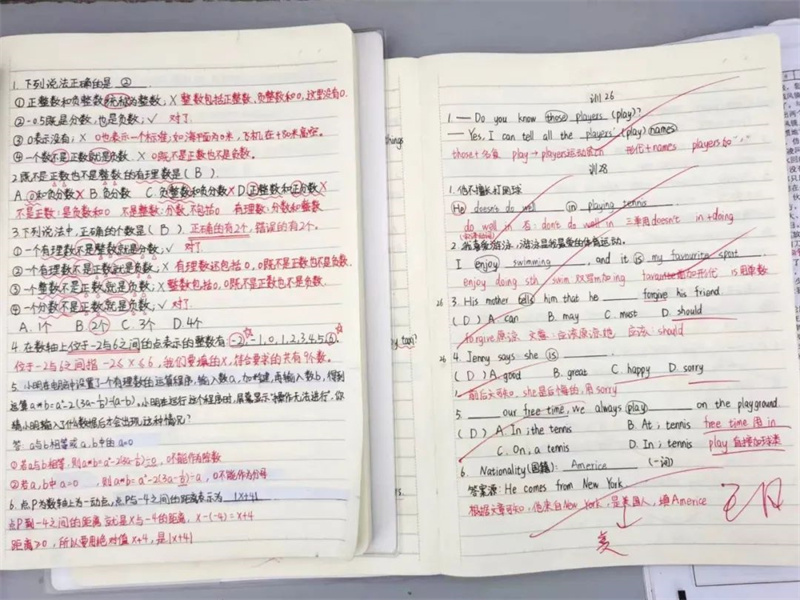 1.下列说法正确的是 ②
①正整数和负整数统称为整数, × 整数包括正整数,负整数和0,这里没有0.
②-0.5既是分数,也是负数, √ 对了
③0表示没有; × 0也表示一个标准,如海平面为0米,飞机在+30米高空。
④一个数不是正数就是负数 × 0既不是正数也不是负数。
2.既不是正数也不是整数的有理数是( B )
A.0和负分数× B.负分数 C.负整数和负分数× D.正整数和正分数×
不是正数:是负数和0 不是整数:分数,不包括0 有理数:分数和整数
3.下列说法中,正确的个数是( B ) 正确的有2个,错误的有2个。
①一个有理数不是整数就是分数, √ 对了
②一个有理数不是正数就是负数, × 有理数还包括0,0既不是正数也不是负数.
③一个整数不是正数就是负数, × 整数包括0,0既不是正数也不是负数.
④一个分数不是正数就是负数, √ 对了
A.1个 B.2个 C.3个 D.4个
4.在数轴上位于-2与6之间的点表示的整数有 -2,-1,0,1,2,3,4,5,6
位于-2与6之间指 -2≤x≤6, 我们要填的x,符合要求的共有9个数。
运算a*b=a²-2(3a-1/b)÷(a-b),小明在运行这个程序时,屏幕显示"操作无法进行",你
猜小明输入了什么数据后才会出现这种情况?
答: a与b相等或a.b中的a=0
6.点P为数轴上为一动点,点P与-4之间的距离表示为 |x+4|
点P到-4之间的距离 就是x与-4的距离, x-(-4)=x+4
距离≥0, 所以要用绝对值x+4,是|x+4|
things
训26
1. — Do you know those players (play)?
— Yes, I can tell all the players' (play) names
those+名复 play→player运动员 形代+names players加"'"
训28
1.他不擅长打网球
He doesn't do well in playing tennis
do well in 否: don't do well in 三单用doesn't in+doing
2.我喜爱游泳,游泳是我最爱的体育运动。
I enjoy swimming, and it is my favourite sport.
enjoy doing sth swim 双写m加ing
26 3. His mother tells him that he ___ forgive his friend
( D ) A. can B. may C. must D. should
forgive原谅 应该: should
26 4. Jenny says: she is ___.
( D ) A. good B. great C. happy D. sorry
5. ___ our free time, we always play ___ on the playground.
( D ) A. In; the tennis B. At; tennis free time 用in
C. On, a tennis D. In; tennis play 直接加球类
6. Nationality(国籍): America (一词)
答案源: He comes from New York
根据文章可知, 他来自New York, 是美国人, 填Americe
美